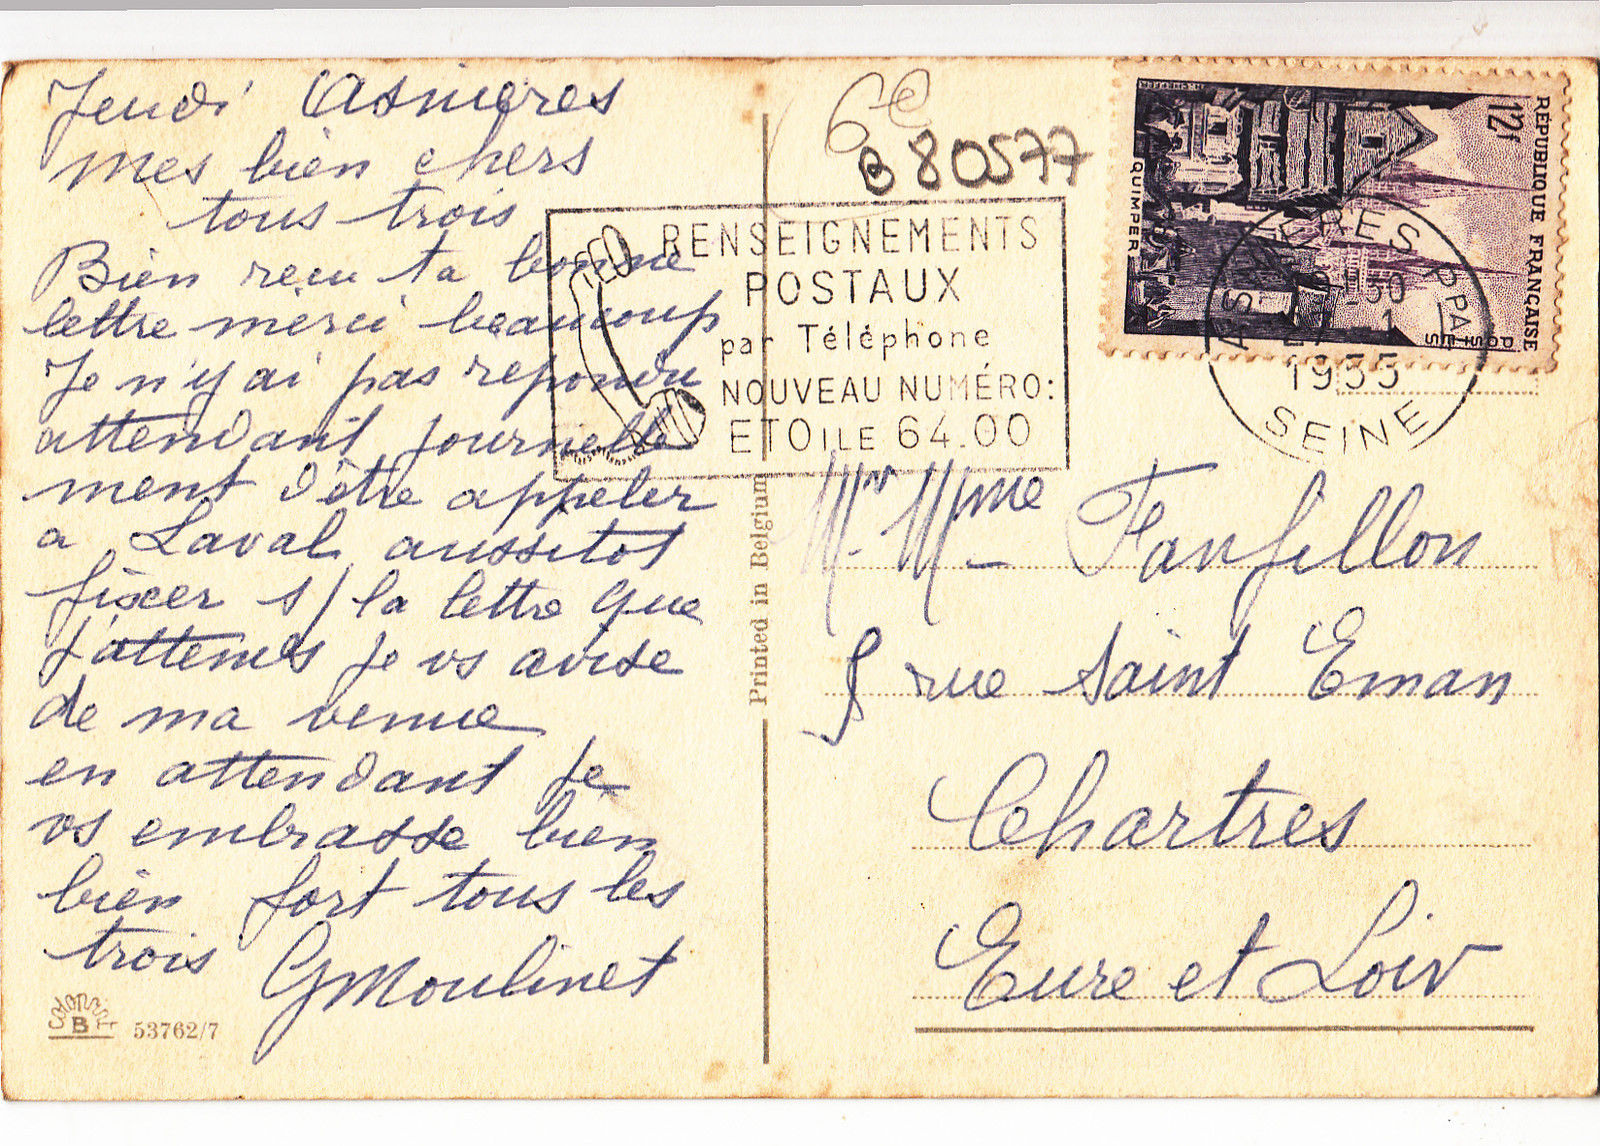 Jeudi Asnieres
mes bien chers
tous trois
Bien recu ta bonne
lettre merci beaucoup
Je n'y ai pas repondu
attendant journelle
ment d'être appeler
a Laval aussitot
fixer s/ la lettre que
j'attends je vs avise
de ma venue
en attendant je
vs embrasse bien
bien fort tous les
trois GMoulinet
colorprint
B 53762/7
Printed in Belgium
6e
B 80577
RENSEIGNEMENTS
POSTAUX
par Téléphone
NOUVEAU NUMÉRO:
ETOILE 64.00
RÉPUBLIQUE FRANÇAISE
12f
POSTES
QUIMPER
H. CHEFFER
ASNIERES PPAL
1955
SEINE
Mr. Mme Fanfillon
5 rue Saint Eman
Chartres
Eure et Loir